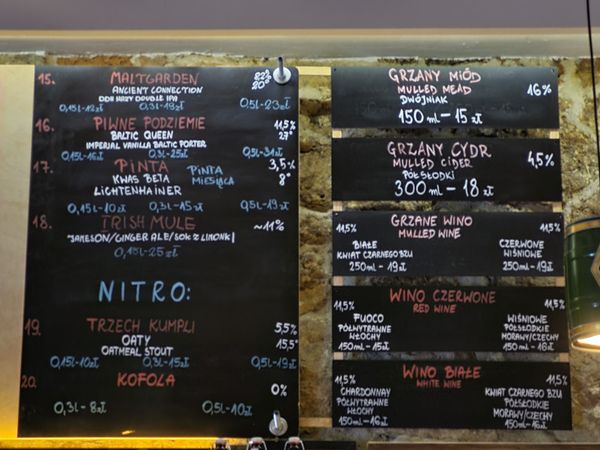 15. MALTGARDEN
ANCIENT CONNECTION
DDH HAZY DOUBLE IPA
20°
0,15l-12zł 0,3l-18zł 0,5l-23zł
16. PIWNE PODZIEMIE 11,5%
BALTIC QUEEN 27°
IMPERIAL VANILLA BALTIC PORTER
0,15l-16zł 0,3l-25zł 0,5l-31zł
17. PINTA PINTA MIESIĄCA 3,5%
KWAS BETA 8°
LICHTENHAINER
0,15l-10zł 0,3l-15zł 0,5l-19zł
18. IRISH MULE ~11%
"JAMESON/GINGER ALE/SOK Z LIMONKI
0,15l-25zł
NITRO:
19. TRZECH KUMPLI 5,5%
OATY 15,5°
OATMEAL STOUT
0,15l-10zł 0,3l-15zł 0,5l-19zł
20. KOFOLA 0%
0,3l-8zł 0,5l-10zł
GRZANY MIÓD
MULLED MEAD 16%
DWÓJNIAK
150ml-15zł
GRZANY CYDR
MULLED CIDER 4,5%
PÓŁSŁODKI
300ml-18zł
GRZANE WINO
MULLED WINE
11,5% 11,5%
BIAŁE CZERWONE
KWIAT CZARNEGO BZU WIŚNIOWE
250ml-19zł 250ml-19zł
WINO CZERWONE
RED WINE
11,5% 11,5%
FUOCO WIŚNIOWE
PÓŁWYTRAWNE PÓŁSŁODKIE
WŁOCHY MORAWY/CZECHY
150ml-15zł 150ml-16zł
WINO BIAŁE
WHITE WINE
11,5% 11,5%
CHARDONNAY KWIAT CZARNEGO BZU
PÓŁWYTRAWNE PÓŁSŁODKIE
WŁOCHY MORAWY/CZECHY
150ml-16zł 150ml-16zł